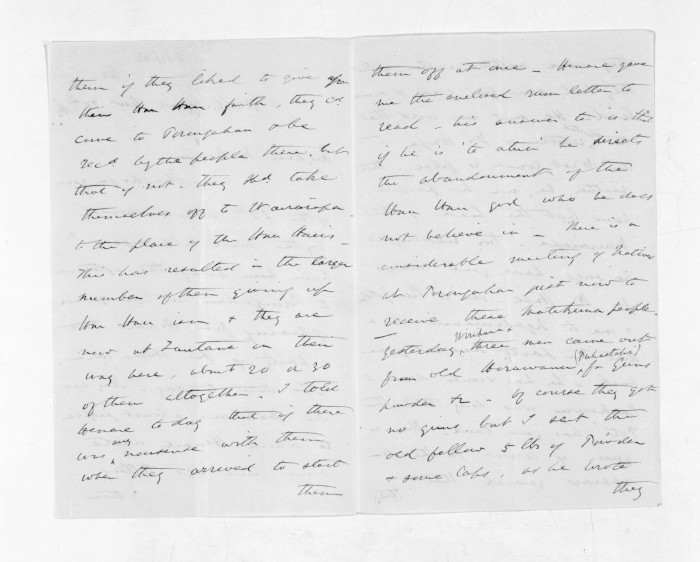 them if they liked to give up
their Hau Hau faith, they cd
come to Porangahau & be
recd by the people there, but
that if not. they shd take
themselves off to Wairarapa
to the place of the Hau Haus –
This has resulted in the larger
number of them giving up
Hau Hau ism & they are
now at Tautane on their
way here, about 20 or 30
of them altogether. I told
Henare to day that if there
was any nonsense with them
when they arrived to start
them
them off at once – Henare gave
me the enclosed letter to
read – his answer to is that
if he is to he directs
the abandonment of the
Hau Hau god who he does
not believe in – There is a
considerable meeting of Natives
at Porangahau just now to
receive these Matikuna people.
Yesterday, Wirihana & three men came out
from old Hirawanu (Pahaetahi) for Guns
powder &c – Of course they got
no guns but I sent the
old fellow 5 lbs of Powder
& some Caps, as he wrote
they